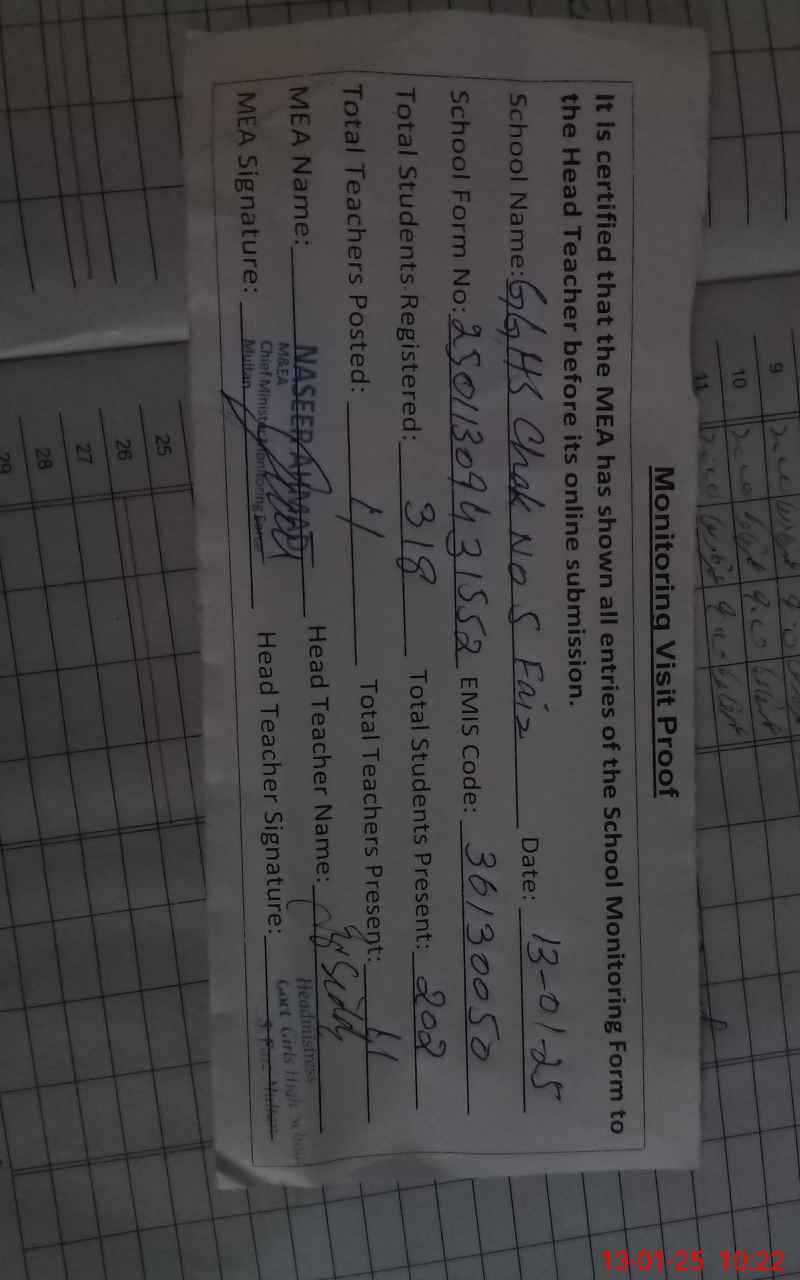 Monitoring Visit Proof
It is certified that the MEA has shown all entries of the School Monitoring Form to
the Head Teacher before its online submission.
School Name: GGHS Chak No 5 Faiz Date: 13-01-25
School Form No: 2501130943 1552 EMIS Code: 36130050
Total Students Registered: 318 Total Students Present: 202
Total Teachers Posted: 11 Total Teachers Present: 11
MEA Name: NASEER AHMAD Head Teacher Name:
M&EA
Chief Minister Monitoring Force
Multan
MEA Signature: Head Teacher Signature:
Headmistress
Govt Girls High School
5 Faiz Multan
9
10
11
25
26
27
28
29
13-01-25 10:22